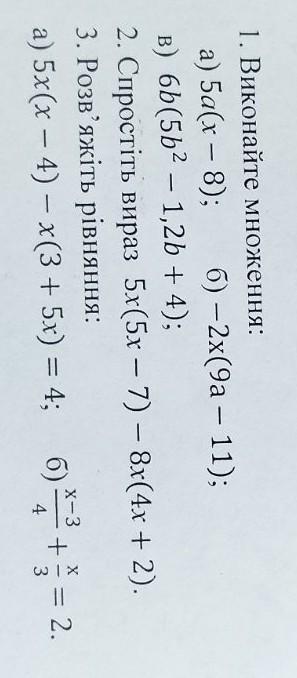 1. Виконайте множення:
а) 5a(x – 8); б) –2x(9a – 11);
в) 6b(5b² – 1,2b + 4);
2. Спростіть вираз 5x(5x – 7) – 8x(4x + 2).
3. Розв’яжіть рівняння:
а) 5x(x – 4) – x(3 + 5x) = 4; б) \frac{x-3}{4} + \frac{x}{3} = 2.